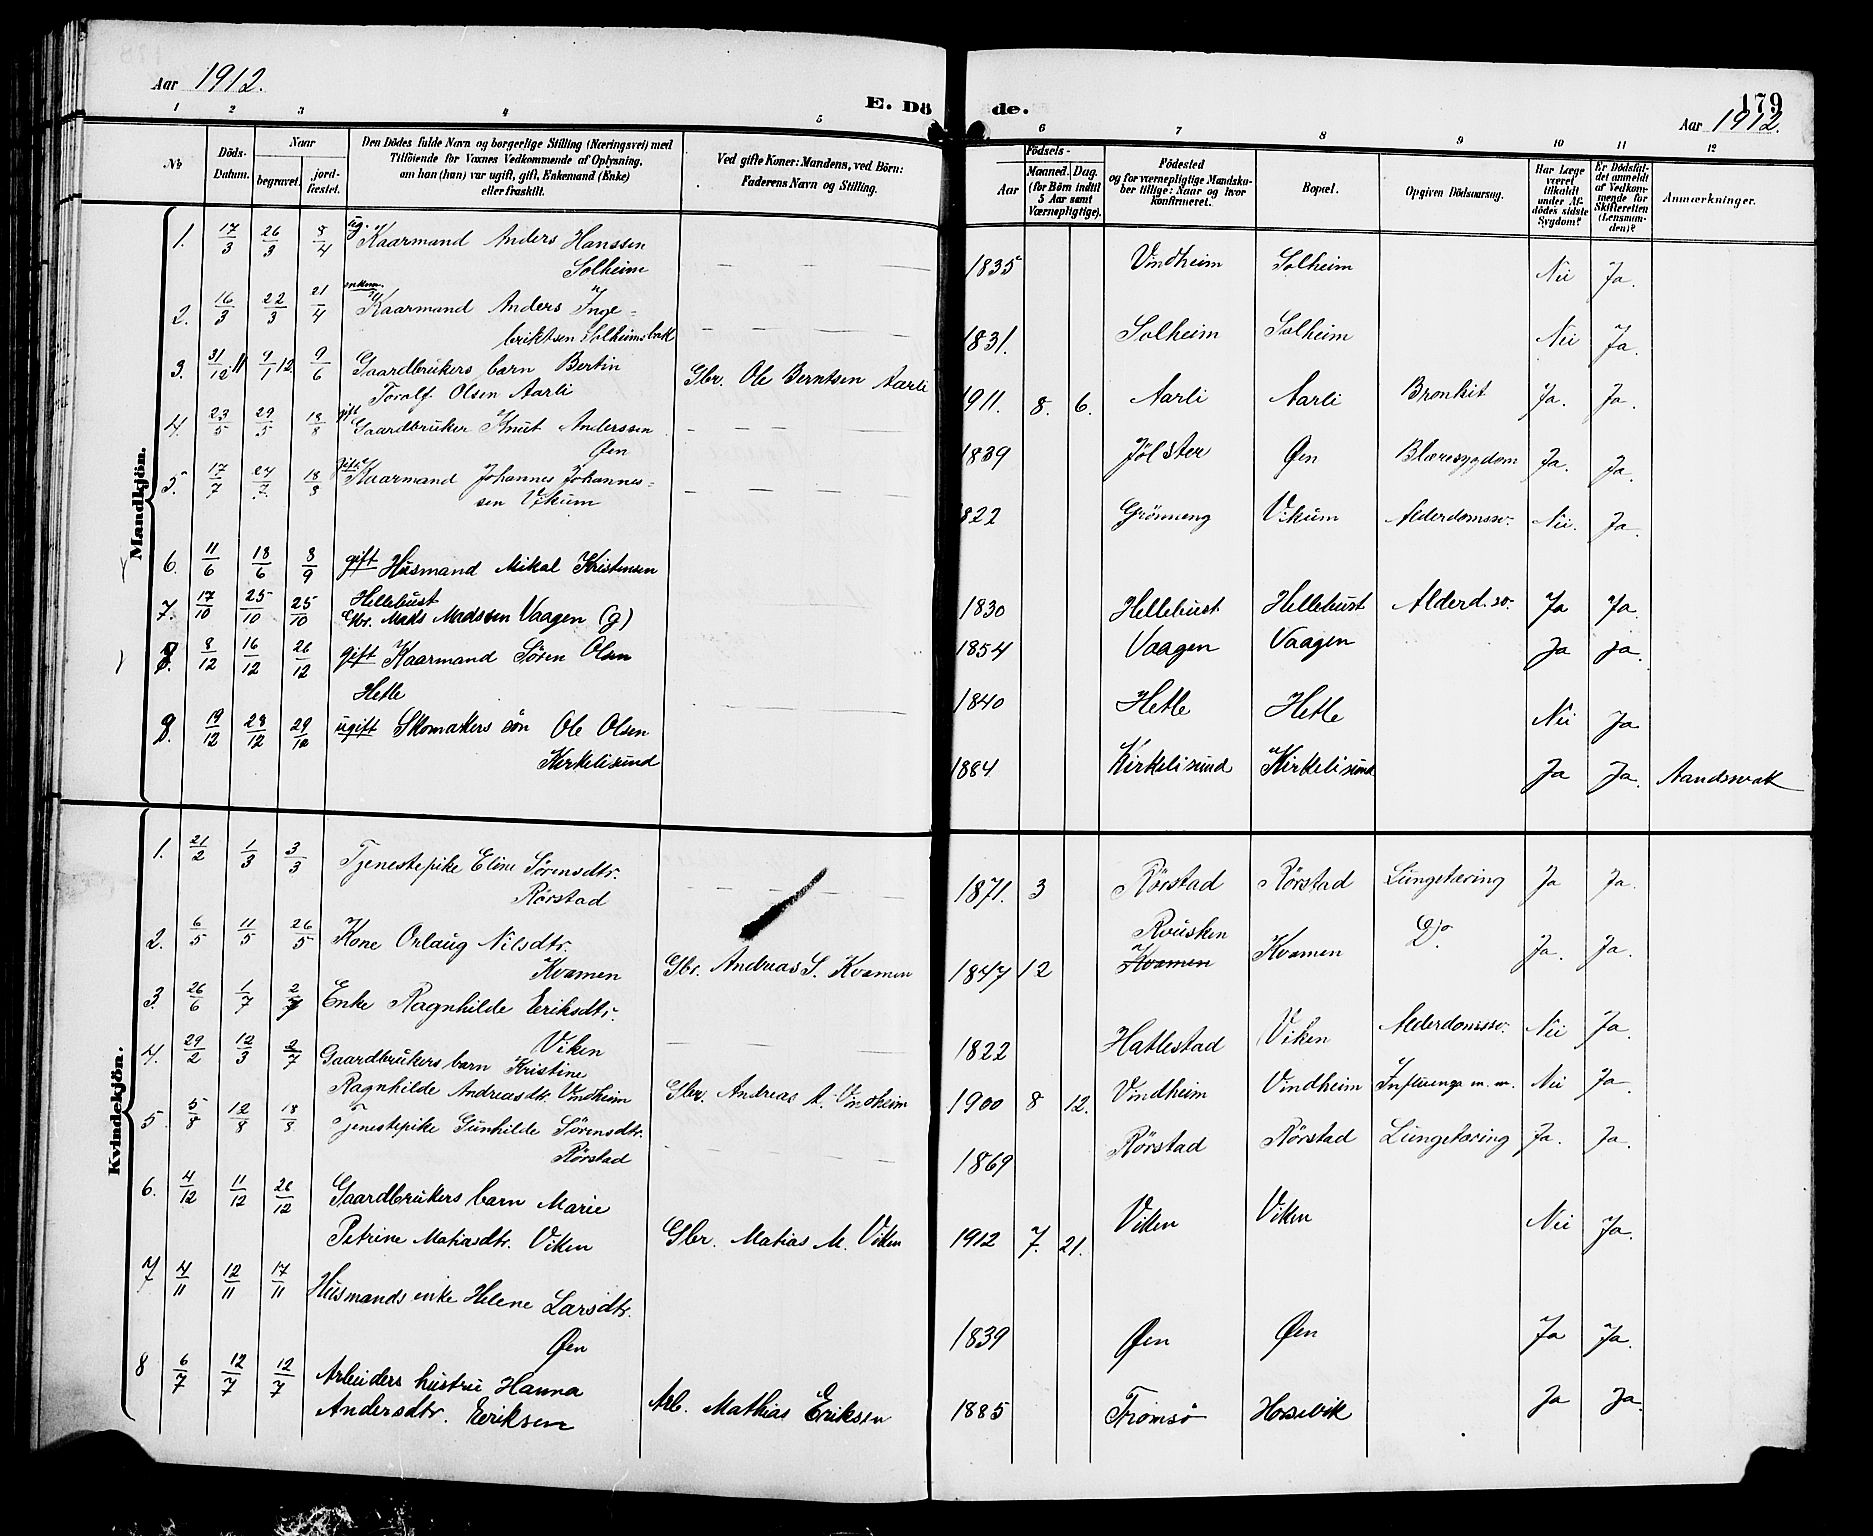 Aar 1912.
E. Dö de.
179
Aar 1912.
1 2 3 4 5 6 7 8 9 10 11 12
No
Döds-Datum.
Naar
begravet.
jord-fæstet.
Den Dödes fulde Navn og borgerlige Stilling (Næringsvei) med
Tilföiende for Voxnes Vedkommende af Oplysning,
om han (hun) var ugift, gift, Enkemand (Enke)
eller fraskilt.
Ved gifte Koner: Mandens, ved Börn:
Faderens Navn og Stilling.
Födsels-
Aar
Maaned. Dag.
(for Börn indtil
5 Aar samt
Værnepligtige).
Födested
og for værnepligtige Mandskaber
tillige: Naar og hvor
konfirmeret.
Bopæl.
Opgiven Dödsaarsag.
Har Læge
været
tilkaldt
under Afdödes
sidste
Sygdom?
Er Dödsfaldet
anmeldt
af Vedkommende
for
Skifteretten
(Lensmanden)?
Anmærkninger.
Mandkjön.
1. 17/3 26/3 8/4 ug. Kaarmand Anders Hanssen
Solheim — — — 1835 Vindheim Solheim Nei Ja.
2. 16/3 22/3 21/4 enkem. Kaarmand Anders Inge-
briktsen Solheimsbak — — — 1831. Solheim Solheim Nei Ja.
3. 31/12 11 9/1 12 9/6 Gaardbrukers barn Bertin
Toralf Olsen Aarli Gbr. Ole Berntsen Aarli 1911. 8. 6. Aarli Aarli Bronkit Ja. Ja.
4. 23/5 29/5 18/8 gift Gaardbruker Knut Anderssen
Øen — — — 1839 Jölster Øen Blæresygdom Ja. Ja.
5. 17/7 24/7 18/8 gift Kaarmand Johannes Johannes-
sen Vikum — — — 1822 Grönneng Vikum Alderdomssv. Nei. Ja.
6. 11/6 18/6 8/9 gift Husmand Mikal Kristensen
Hellebust 1830 Hellebust Hellebust Alderd.sv. Ja Ja.
7. 17/10 25/10 25/10 Gbr. Mads Madssen Vaagen (g) 1854 Vaagen Vaagen Ja ja.
8. 8/12 16/12 26/12 gift Kaarmand Sören Olsen
Hetle 1840 Hetle Hetle Nei Ja
9. 19/12 28/12 29/12 ugift Skomakers sön Ole Olsen
Kirkelisund 1884 Kirkelisund Kirkelisund Ja Ja. Aandssvak
Kvindekjön.
1. 21/2 1/3 3/3 Tjenestepike Eline Sörensdtr.
Rörstad — — — 1871. 3 Rörstad Rörstad Lungetæring Ja Ja.
2. 6/5 11/5 26/5 Kone Orlaug Nilsdtr.
Kvamen Gbr. Andreas S. Kvamen 1847 12 Kvamen Kvamen Do. Ja. Ja.
3 26/6 1/7 2/7 Enke Ragnhilde Eeriksdtr.
Viken — — — 1822 Hatlestad Viken Alderdomssv. Nei Ja.
4. 29/2 12/3 2/7 Gaardbrukers barn Kristine
Ragnhilde Andreasdtr. Vindheim Gbr. Andreas A. Vindheim 1900 8 12. Vindheim Vindheim Influenza m.m. Nei Ja.
5. 5/8 12/8 18/8 Tjenestepike Gunhilde Sörensdtr.
Rörstad — — — 1869 Rörstad Rörstad Lungetæring Ja. Ja.
6. 4/12 11/12 26/12 Gaardbrukers barn Marie
Petrine Matiasdtr. Viken Gbr. Matias M. Viken 1912 7. 21. Viken Viken Nei Ja.
7 4/11 12/11 17/11 Husmands enke Helene Larsdtr.
Øen 1839 Øen Øen Ja Ja.
8 6/7 12/7 12/7 Arbeiders hustru Hanna
Andersdtr. Eeriksen Arb. Mathias Eriksen 1885 Tromsö Ja Ja.